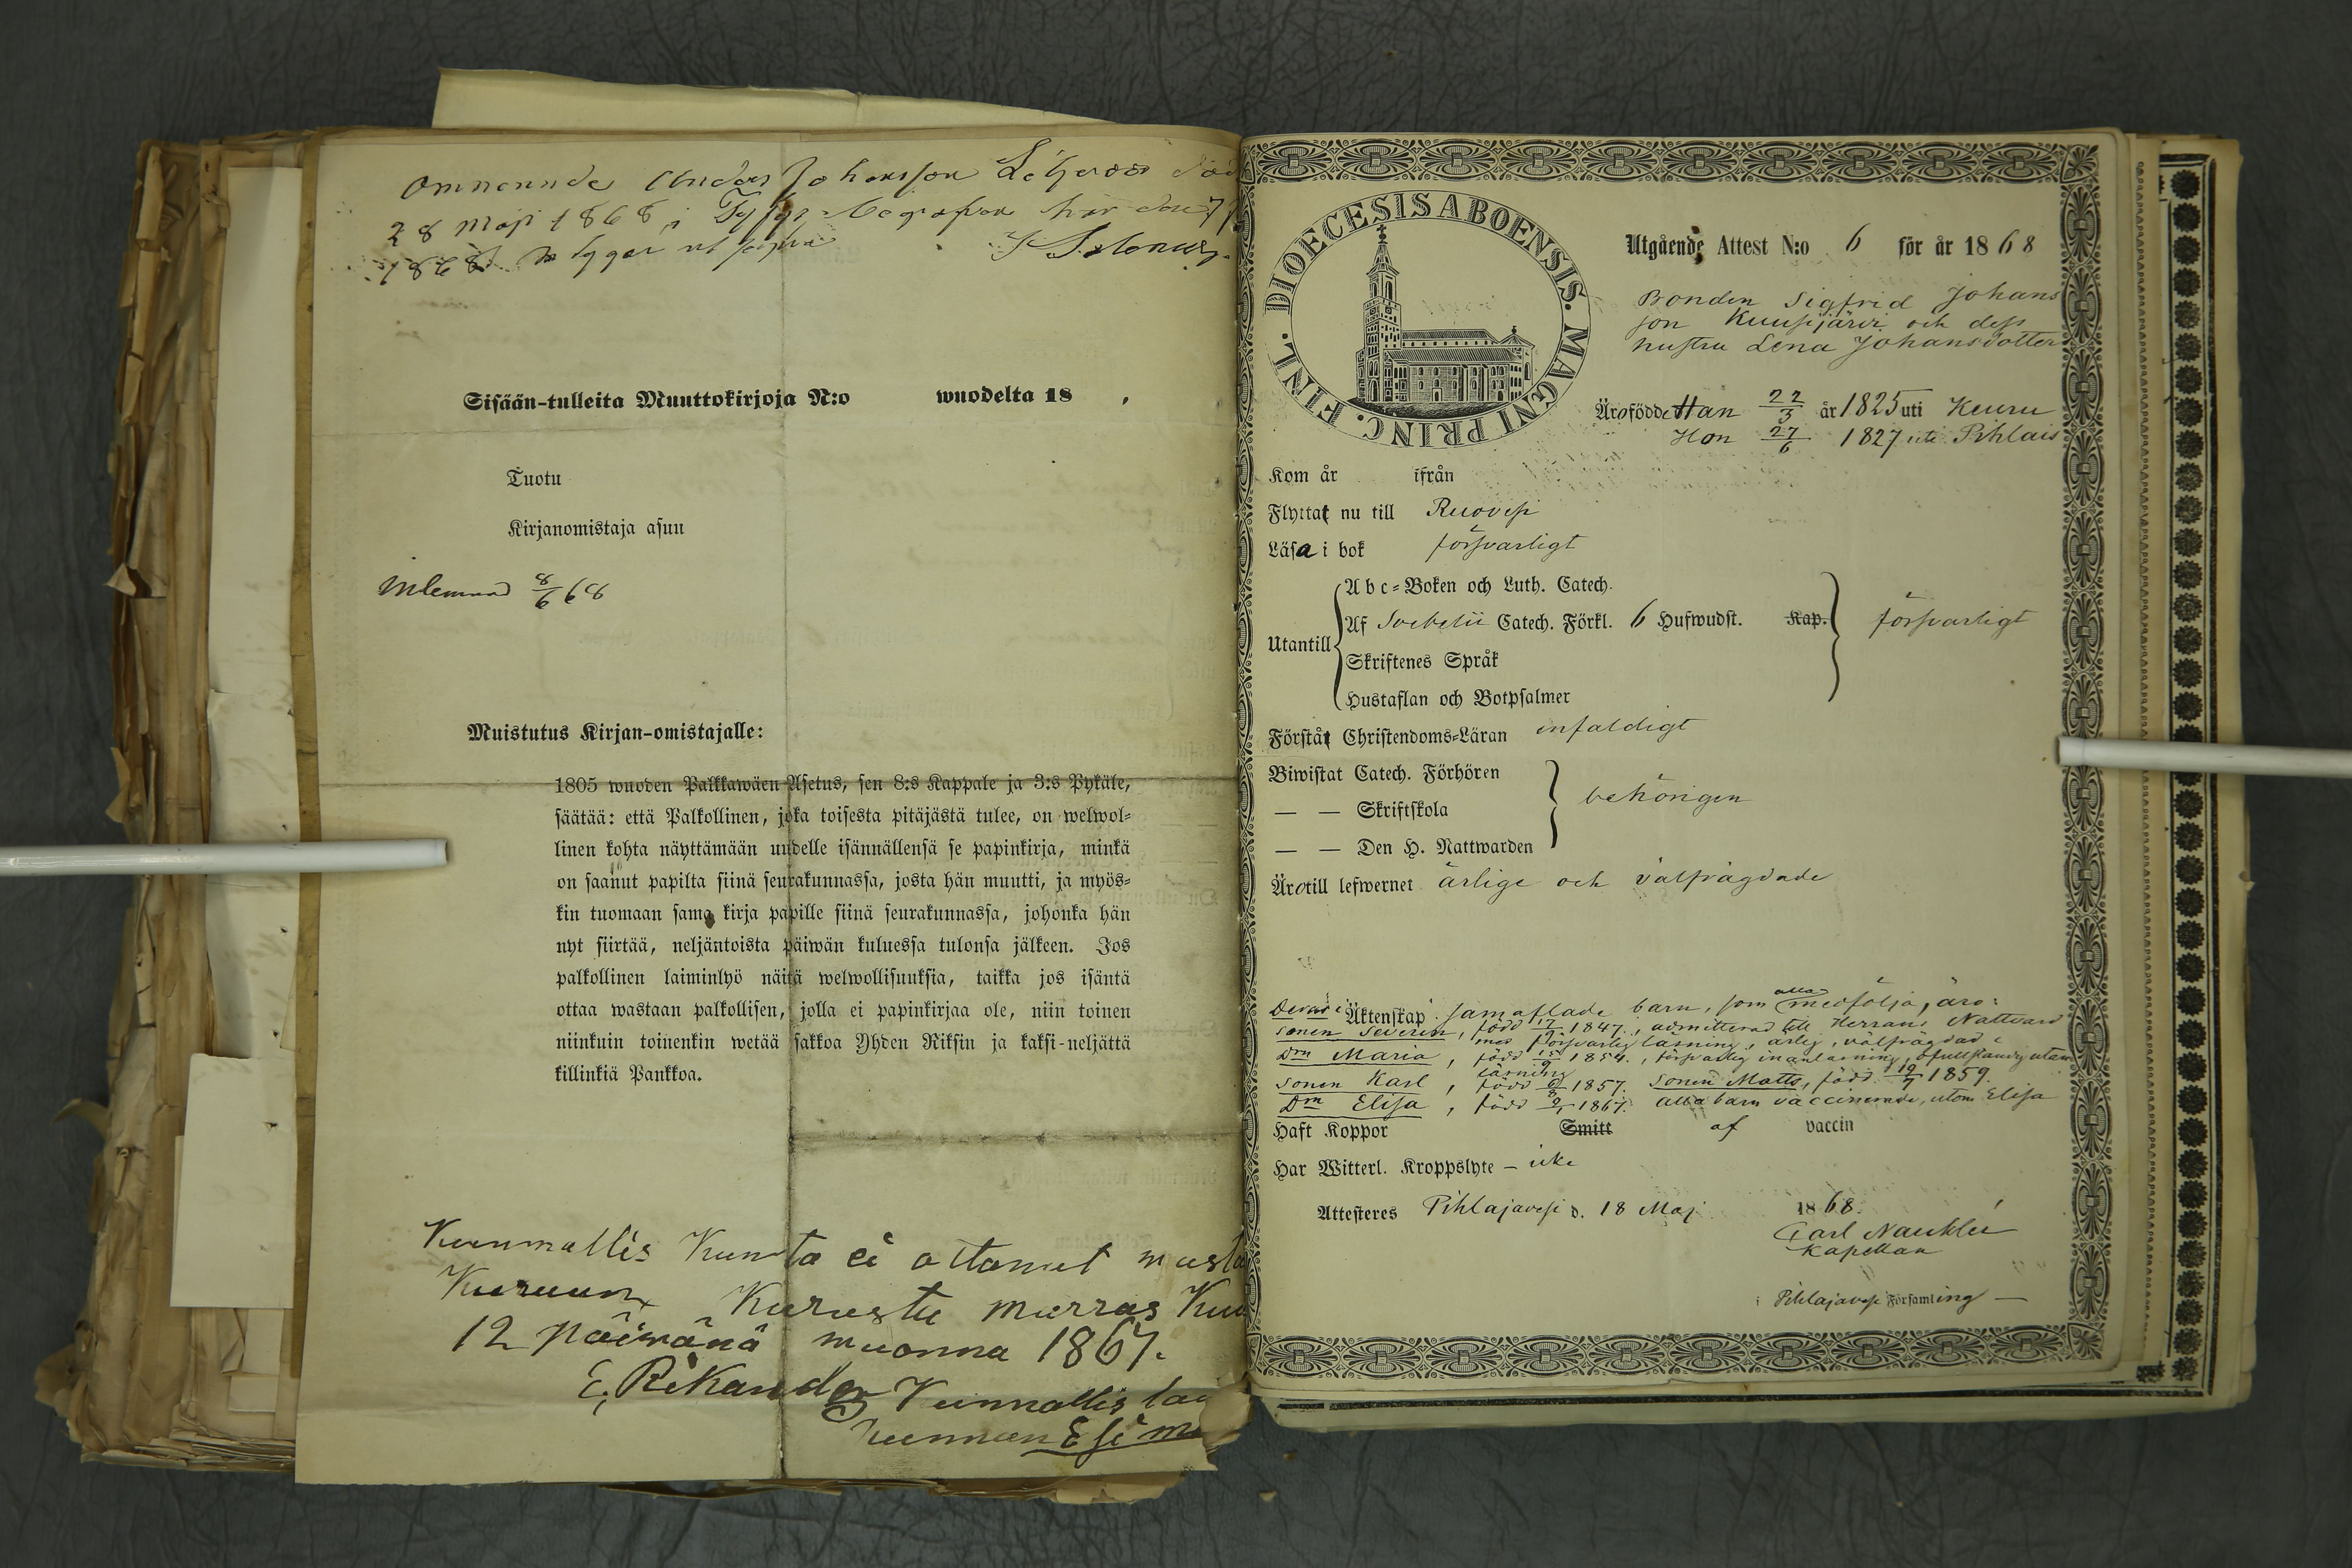 Omnemnde Anders Johansson
28 Maji 1868 i
1868
Sisään-tulleita Muuttokirjoja N:o wuodelta 18 ,
Tuotu
Kirjanomistaja asuu
inlemnad 8/6 68
Muistutus Kirjan-omistajalle:
1805 wuoden Palkkawäen Asetus, sen 8:s Kappale ja 3:s Pykäle,
säätää: että Palkollinen, joka toisesta pitäjästä tulee, on welwol-
linen kohta näyttämään uudelle isännällensä se papinkirja, minkä
on saanut papilta siinä seurakunnassa, josta hän muutti, ja myös-
kin tuomaan sama kirja papille siinä seurakunnassa, johonka hän
nyt siirtää, neljäntoista päiwän kuluessa tulonsa jälkeen. Jos
palkollinen laiminlyö näitä welwollisuuksia, taikka jos isäntä
ottaa wastaan palkollisen, jolla ei papinkirjaa ole, niin toinen
niinkuin toinenkin wetää sakkoa Yhden Riksin ja kaksi-neljättä
killinkiä Pankkoa.
Kunnallis Kunta ei ottanut wasta
Kuruun Kurusta marras Kuu
12 päiwänä wuonna 1867.
E. Rikander Kunnallis lau
kunnan Esi m
DIOECESIS ABOENSIS. MAGNI PRINC. FINL.
Utgående Attest N:o 6 för år 1868
Bonden Sigfrid Johans
son Kuusijärvi och dess
hustru Lena Johansdotter
Äro födde Han 22/3 år 1825 uti Keuru
Hon 27/6 1827 uti Pihlais
Kom år ifrån
Flyttat nu till Ruovesi
Läsa i bok försvarligt
Abc-Boken och Luth. Catech.
Utantill Af Svebelii Catech. Förkl. 6 Hufwudst. Kap. försvarligt
Skriftenes Språk
Hustaflan och Botpsalmer
Förstår Christendoms-Läran enfaldigt
Biwistat Catech. Förhören
— — Skriftskola behörigen
— — Den H. Nattwarden
Äro till lefwernet ärlige och välfrägdade
Deras i Äktenskap samaflade barn, som alla medfölja, äro:
sonen Severin, född 17/12 1847., admitterad till Herrans Nattvard
med försvarlig läsning, ärlig, välfrägdad
Drn Maria, född 15/9 1854., försvarlig innanläsning, ofullständig utan
läsning
sonen Karl, född 6/8 1857. sonen Matts, född 19/7 1859.
Drn Elisa, född 9/1 1867. alla barn vaccinerade, utom Elisa
Haft Koppor Smitt af vaccin
Har Witterl. Kroppslyte – icke
Attesteres Pihlajavesi d. 18 Maj 1868.
Carl Nauklér
Kapellan
i Pihlajavesi Församling —